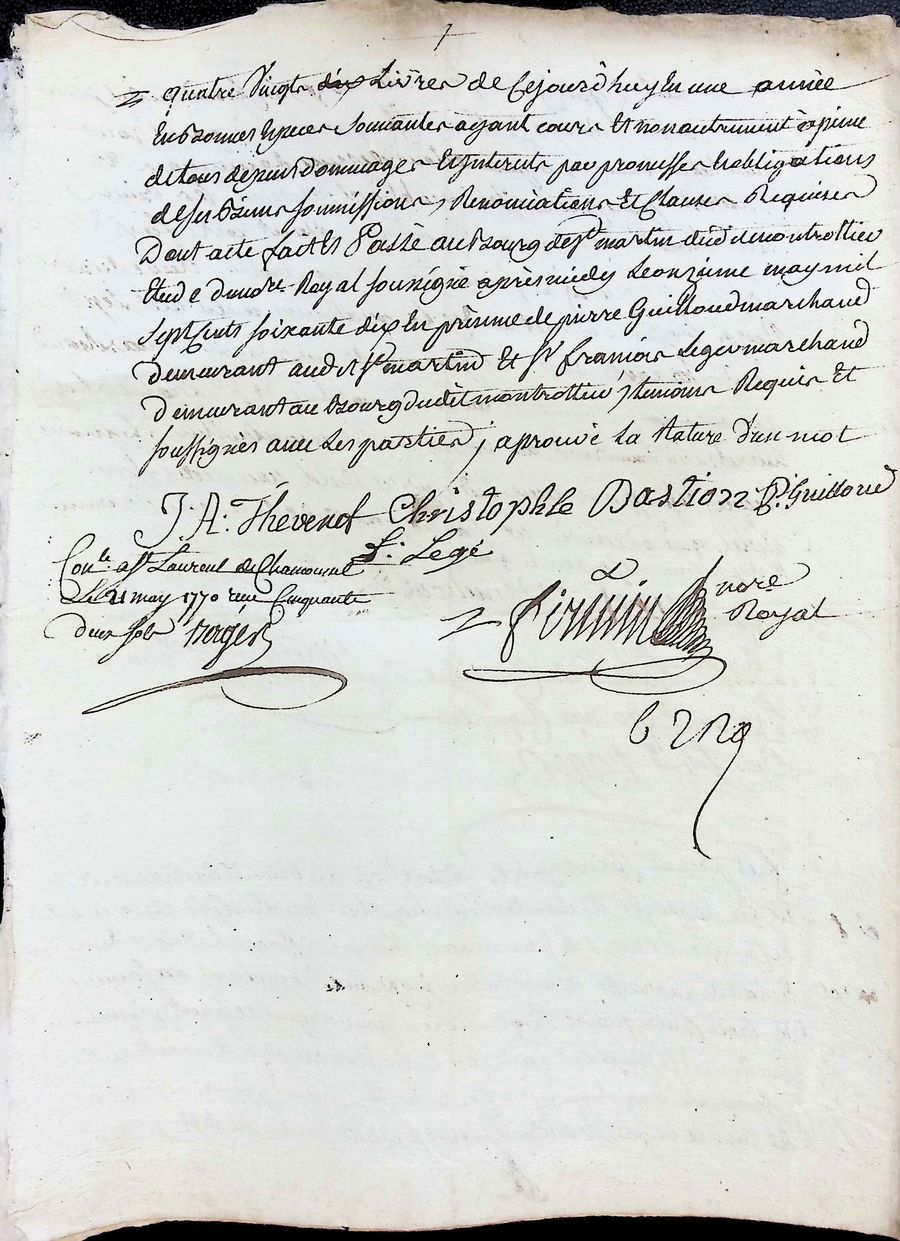 quatre Vingts dix Livres de Cejourd'huy En une année
En Bonnes Especes Sonnantes ayant cours Et non autrement a peine
de tous depens Dommages Et jnterets par promesses Et obligations
de ses Biens soumissions, Renonciations Et Clauses Requises
Dont acte fait Et Passé au Bourg de St martin dudit montrottier
Etude du nore Royal soussigné après midy Le onzieme may mil
Sept Cents soixante dix En présence de pierre Guilloud marchand
demeurant audit St martin Et Sr francois Leger marchand
demeurant au Bourg dudit montrottier, temoins Requis Et
soussignés avec Les parties, aprouvé la Rature d'un mot
J. A. Thévenet Christophle Bastion P. Guilloud
f. Legé
Conlé a St Laurent de Chamousset
Le 21 may 1770 recu Cinquante
deux sols
nore
Royal